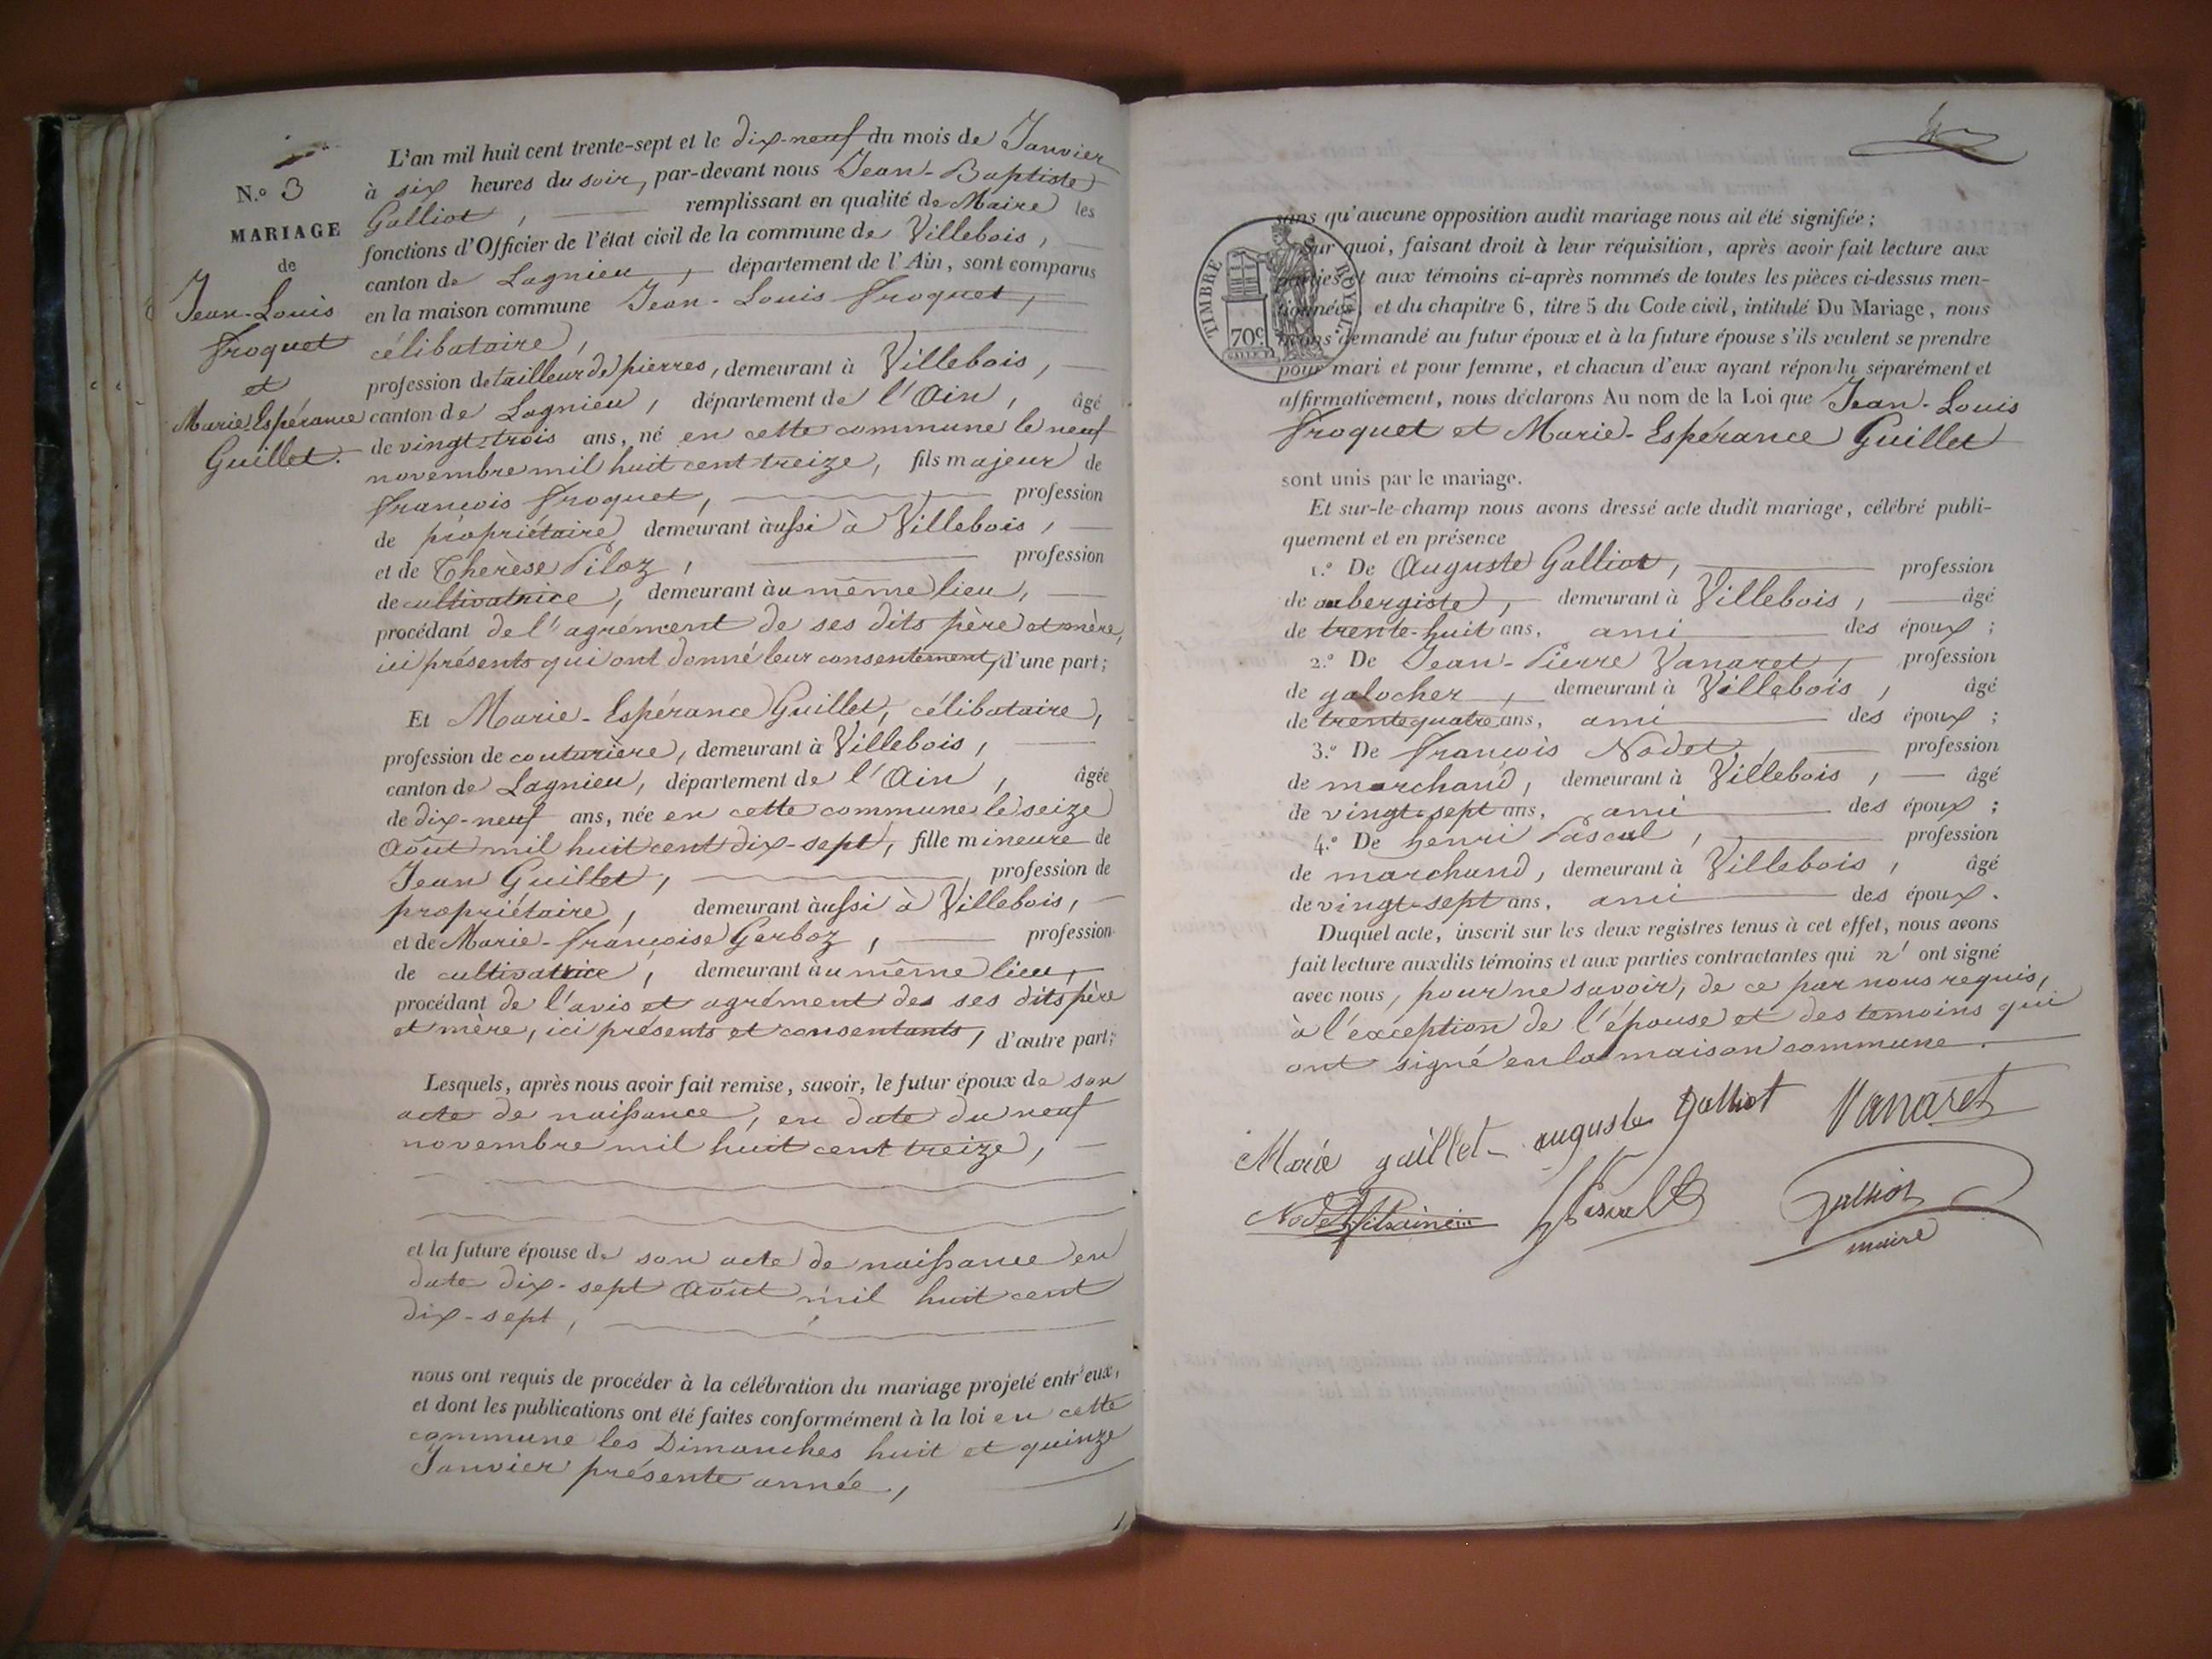 N.º 3
MARIAGE
de
Jean-Louis
Froquet
et
Marie Espérance
Guillet.
L'an mil huit cent trente-sept et le dix-neuf du mois de Janvier
à six heures du soir, par-devant nous Jean-Baptiste
Galliot, remplissant en qualité de Maire les
fonctions d'Officier de l'état civil de la commune de Villebois,
canton de Lagnieu, département de l'Ain, sont comparus
en la maison commune Jean-Louis Froquet,
célibataire,
profession de tailleur de pierres, demeurant à Villebois,
canton de Lagnieu, département de l'Ain, âgé
de vingt-trois ans, né en cette commune le neuf
novembre mil huit cent treize, fils majeur de
François Froquet, profession
de propriétaire demeurant aussi à Villebois,
et de Thérèse Piloz, profession
de cultivatrice, demeurant au même lieu,
procédant de l'agrément de ses dits père et mère,
ici présents qui ont donné leur consentement, d'une part;
Et Marie-Espérance Guillet, célibataire,
profession de couturière, demeurant à Villebois,
canton de Lagnieu, département de l'Ain, âgée
de dix-neuf ans, née en cette commune le seize
Août mil huit cent dix-sept, fille mineure de
Jean Guillet, profession de
propriétaire, demeurant aussi à Villebois,
et de Marie-Françoise Garboz, profession
de cultivatrice, demeurant au même lieu,
procédant de l'avis et agrément des ses dits père
et mère, ici présents et consentants, d'autre part;
Lesquels, après nous avoir fait remise, savoir, le futur époux de son
acte de naissance, en date du neuf
novembre mil huit cent treize,
et la future épouse de son acte de naissance en
date dix-sept Août mil huit cent
dix-sept,
nous ont requis de procéder à la célébration du mariage projeté entr'eux,
et dont les publications ont été faites conformément à la loi en cette
commune les Dimanches huit et quinze
Janvier présente année,
TIMBRE ROYAL
70c
sans qu'aucune opposition audit mariage nous ait été signifiée;
Sur quoi, faisant droit à leur réquisition, après avoir fait lecture aux
parties et aux témoins ci-après nommés de toutes les pièces ci-dessus men-
tionnées, et du chapitre 6, titre 5 du Code civil, intitulé Du Mariage, nous
avons demandé au futur époux et à la future épouse s'ils veulent se prendre
pour mari et pour femme, et chacun d'eux ayant répondu séparément et
affirmativement, nous déclarons Au nom de la Loi que Jean-Louis
Froquet et Marie-Espérance Guillet
sont unis par le mariage.
Et sur-le-champ nous avons dressé acte dudit mariage, célébré publi-
quement et en présence
1.º De Auguste Galliot, profession
de aubergiste, demeurant à Villebois, âgé
de trente-huit ans, ami des époux;
2.º De Jean-Pierre Vanaret, profession
de galocher, demeurant à Villebois, âgé
de trente quatre ans, ami des époux;
3.º De François Nodet, profession
de marchand, demeurant à Villebois, âgé
de vingt-sept ans, ami des époux;
4.º De henri Pascal, profession
de marchand, demeurant à Villebois, âgé
de vingt-sept ans, ami des époux.
Duquel acte, inscrit sur les deux registres tenus à cet effet, nous avons
fait lecture auxdits témoins et aux parties contractantes qui n'ont signé
avec nous, pour ne savoir, de ce par nous requis,
à l'exception de l'épouse et des temoins qui
ont signé en la maison commune.
Marie guillet auguste Galliot Vanaret
Nodet Pascal Galliot
maire